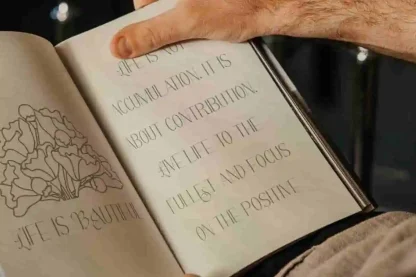 LIFE IS BEAUTIFUL
LIFE IS NOT
ACCUMULATION. IT IS
ABOUT CONTRIBUTION.
LIVE LIFE TO THE
FULLEST AND FOCUS
ON THE POSITIVE